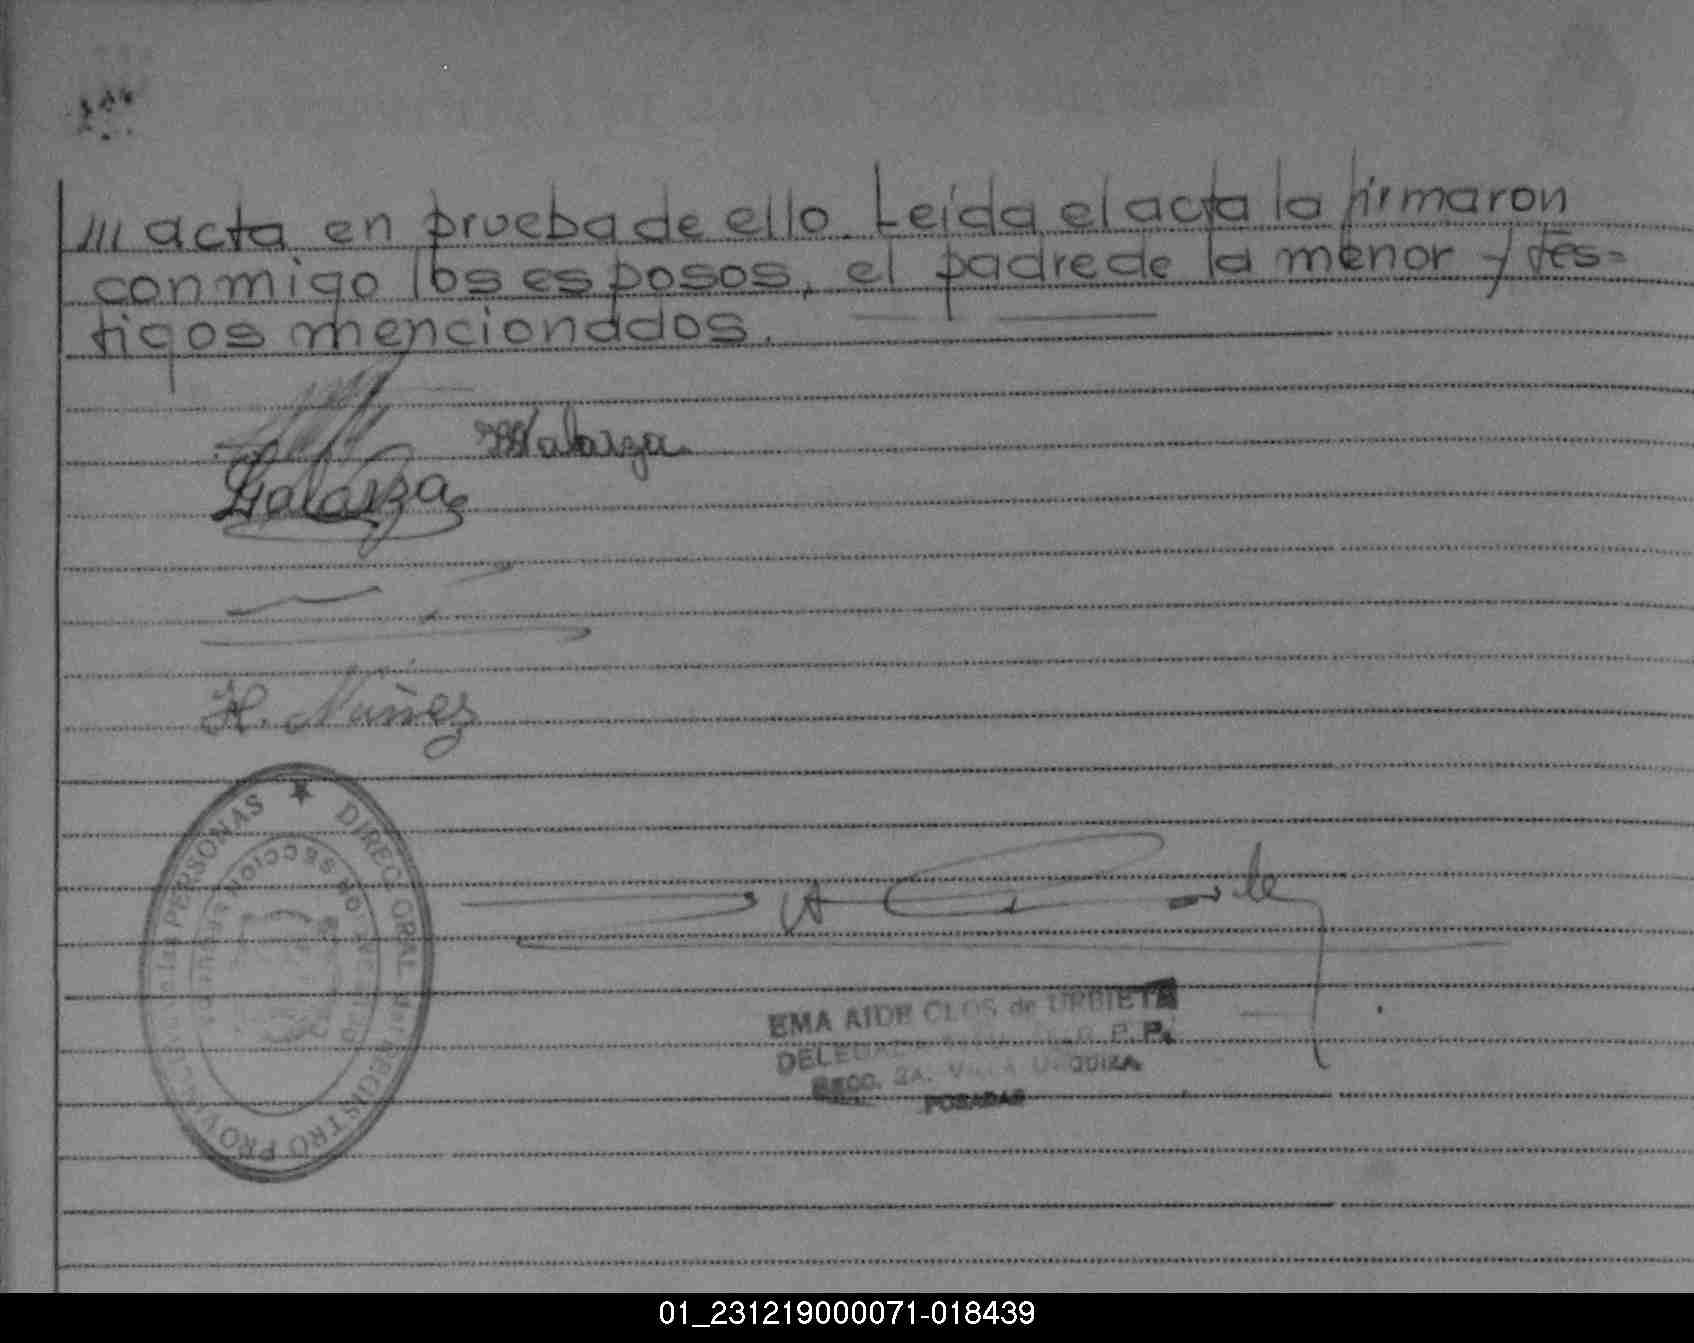 /// acta en prueba de ello. Leída el acta la firmaron
conmigo los esposos, el padre de la menor y tes=
tigos mencionados.
Galarza
H. Núñez
DIREC. GRAL. REGISTRO PROVINC. de las PERSONAS
SECCION
EMA AIDE CLOS de URBIETA
DELEGADA R. P. P.
SECC. 2A. VILLA URQUIZA
POSADAS
01_231219000071-018439